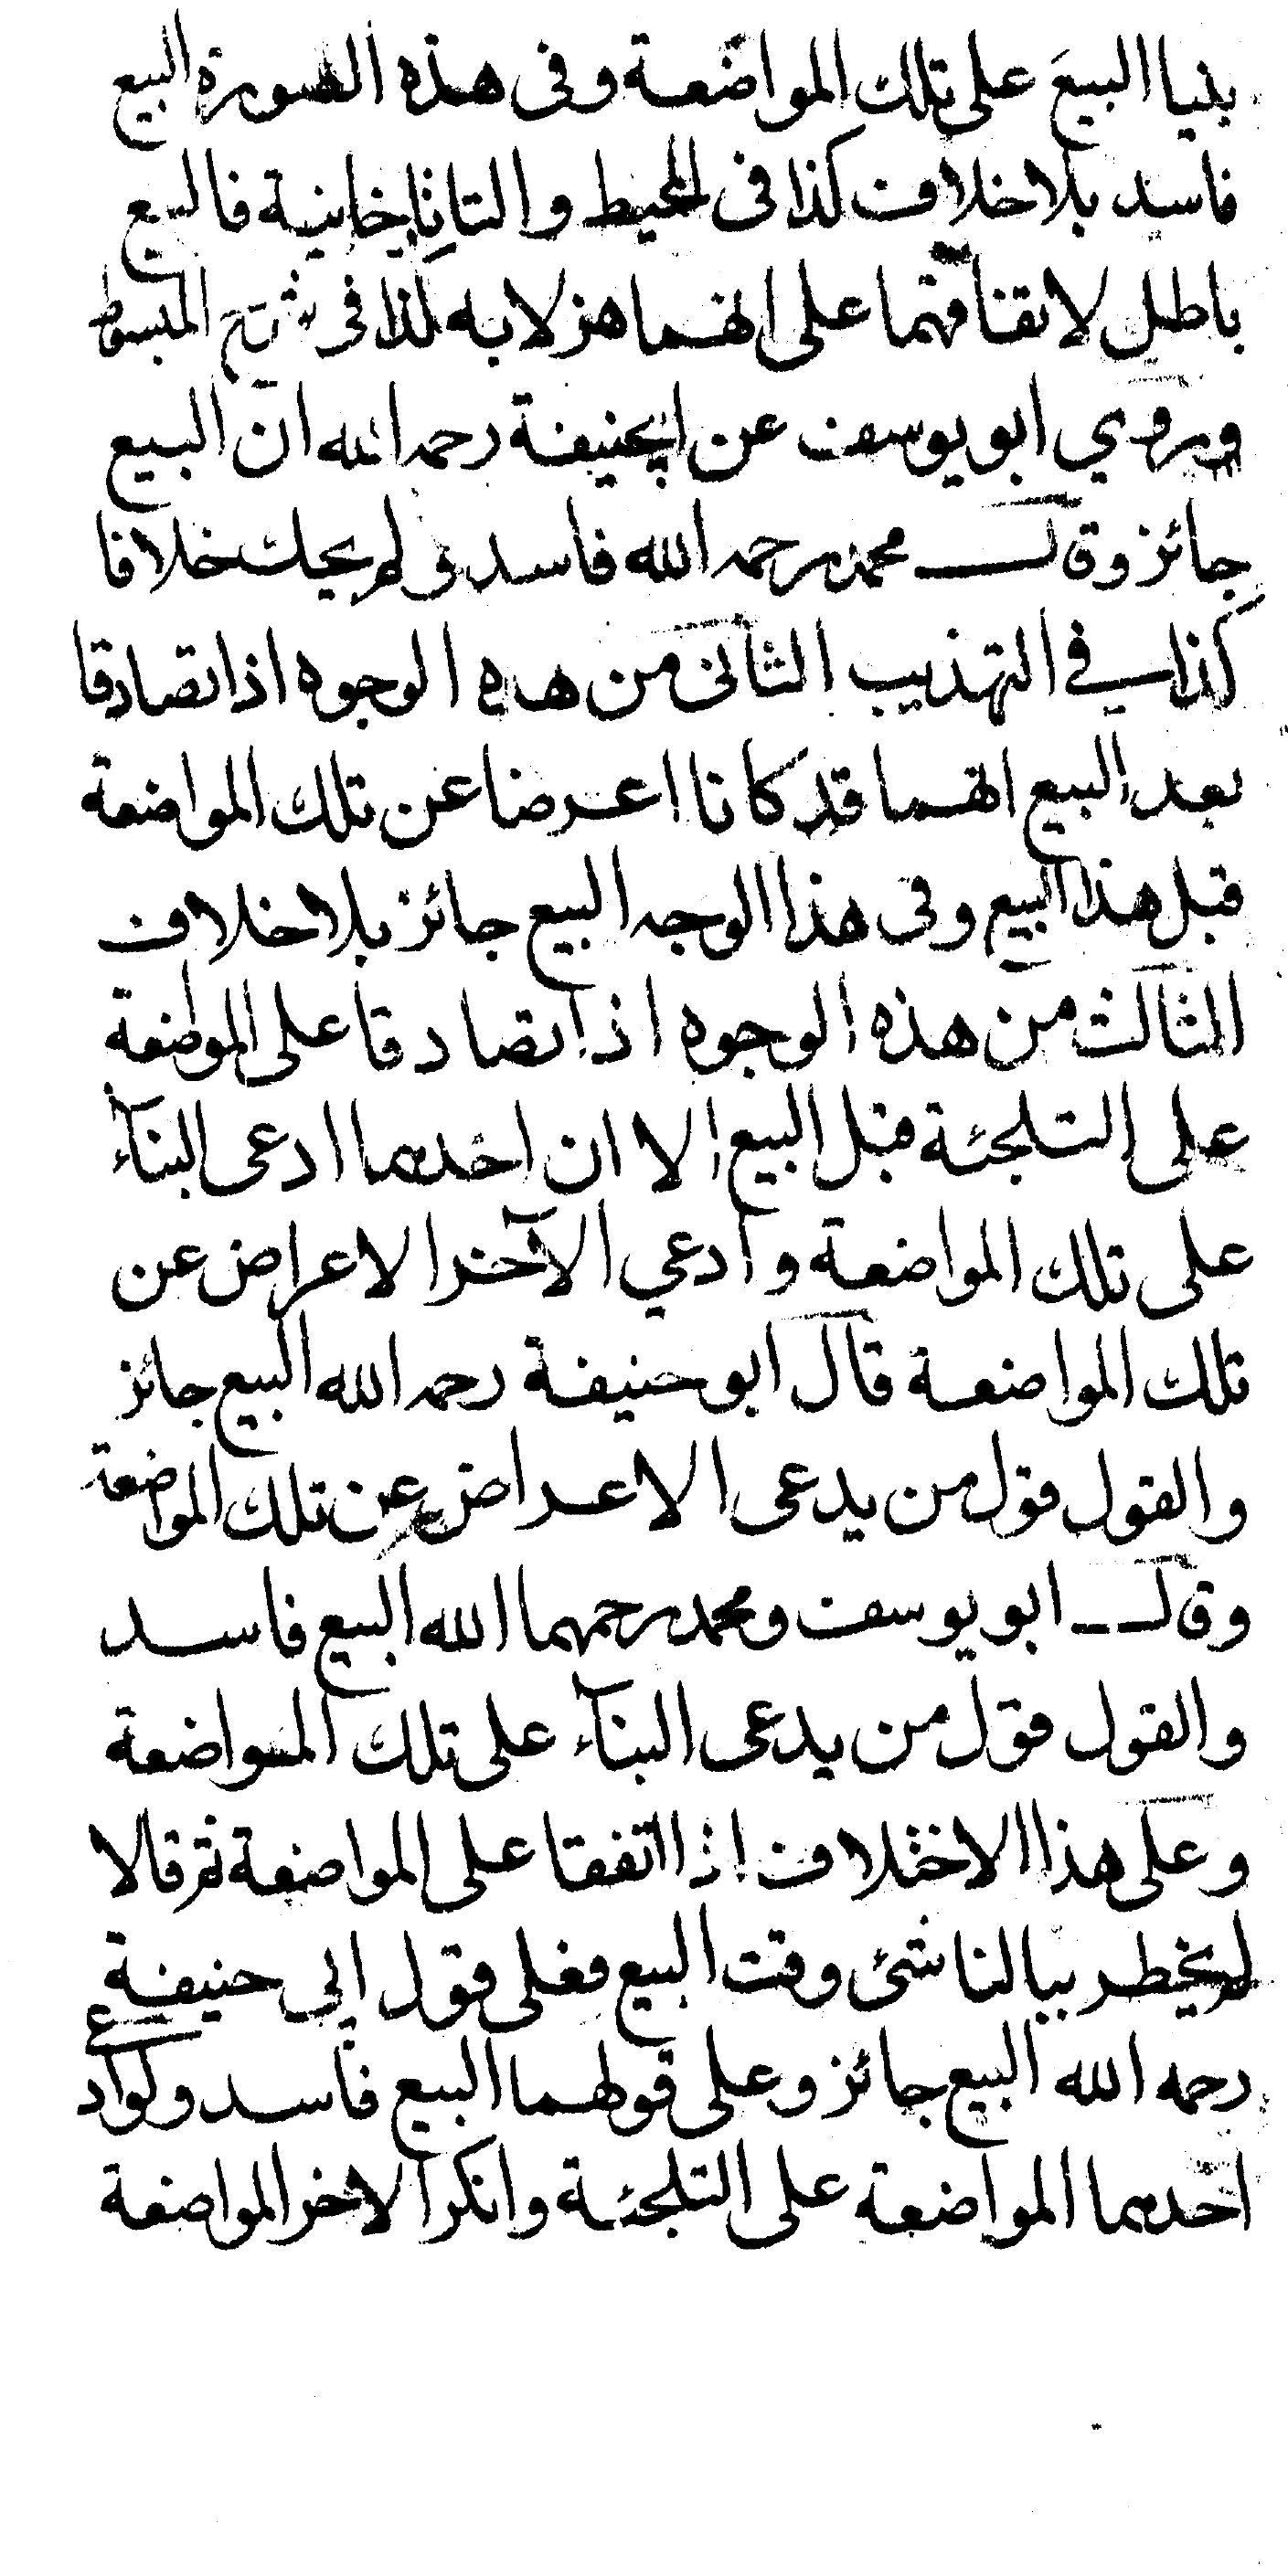 بنيا البيع على تلك المواضعة وفى هذه الصورة البيع
فاسد بلا خلاف كذا فى المحيط والتاتارخانية فالبيع
باطل لاتفاقهما على انهما هزلا به كذا فى شرح المبسوط
وروي ابو يوسف عن ابيحنيفة رحمه الله ان البيع
جائز وقال محمد رحمه الله فاسد ولم يحك خلافا
كذا في التهذيب الثانى من هذه الوجوه اذا تصادقا
بعد البيع انهما قد كانا اعرضا عن تلك المواضعة
قبل هذا البيع وفى هذا الوجه البيع جائز بلا خلاف
الثالث من هذه الوجوه اذا تصادقا على المواضعة
على التلجئة قبل البيع الا ان احدهما ادعى البنآء
على تلك المواضعة وادعي الآخر الاعراض عن
تلك المواضعة قال ابو حنيفة رحمه الله البيع جائز
والقول قول من يدعى الاعراض عن تلك المواضعة
وقال ابو يوسف ومحمد رحمهما الله البيع فاسد
والقول قول من يدعى البنآء على تلك المواضعة
وعلى هذا الاختلاف اذا اتفقا على المواضعة ثم قالا
لم يخطر ببالنا شئ وقت البيع فعلى قول ابى حنيفة
رحمه الله البيع جائز وعلى قولهما البيع فاسد ولو ادعى
احدهما المواضعة على التلجئة وانكر الاخر المواضعة